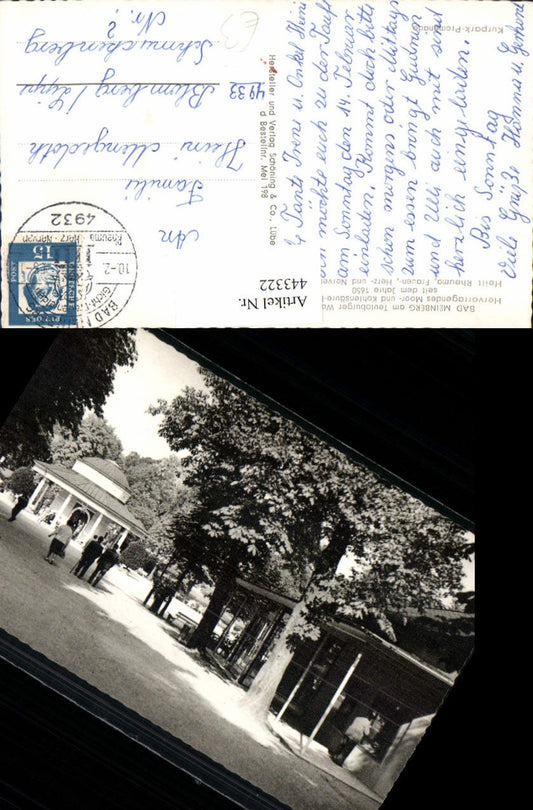 BAD MEINBERG am Teutoburger Wa
Hervorragendes Moor- und Kohlensäure-
seit dem Jahre 1650
Heilt Rheuma, Frauen-, Herz- und Nerven
Kurpark-Promenade
Tante Irene u. Onkel Heini
möchte euch zu der Taufe
am Sonntag den 14. Februar
einladen. Kommt doch bitte
schon morgens oder Mittags
zum essen bringt Gudrun
und Ulli auch mit seid
herzlich eingeladen.
Bis Sonntag
Viele Grüße Hanna u. Gerhard
Hersteller und Verlag Schöning & Co., Lübe
Bestellnr. Mei 198
Artikel Nr.
443322
4932
BAD
10.-2.
Rheuma Herz Nerven
15
DEUTSCHE
An
Familie
Heini Mengedoth
4933 Blomberg / Lippe
Schmuckenberg
Nr. 2
€3